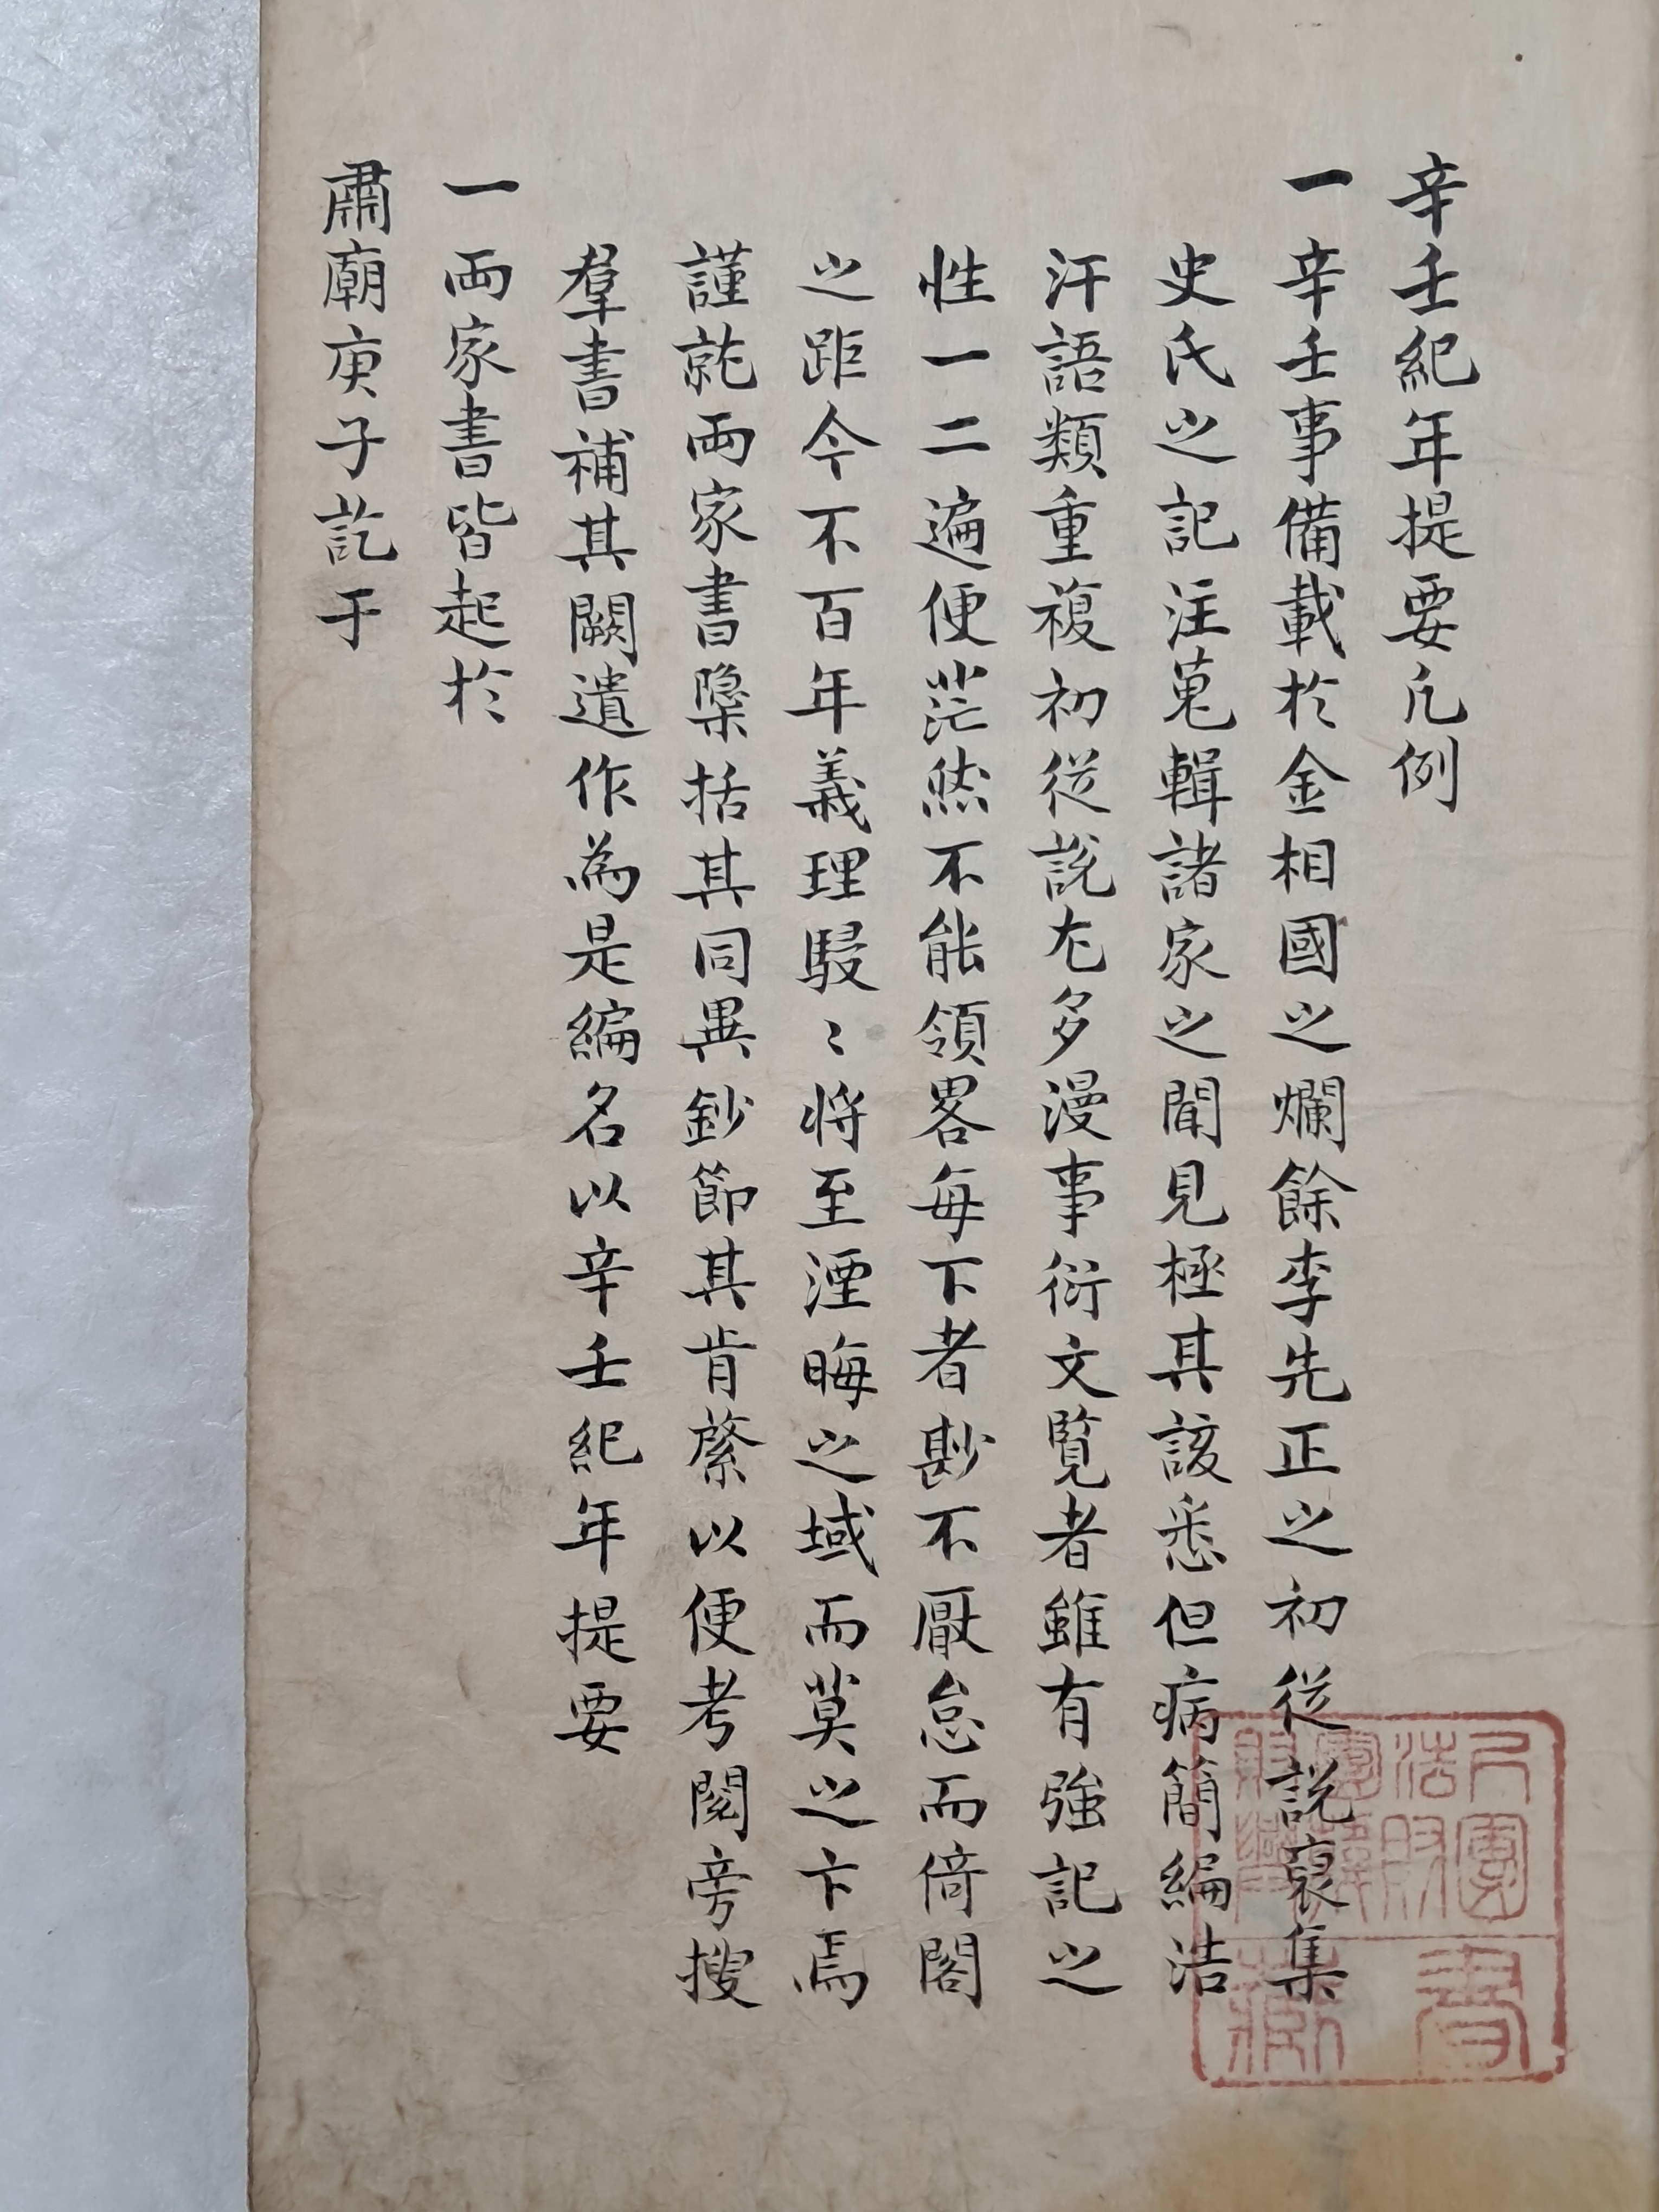 辛壬紀年提要凡例
一辛壬事備載於金相國之爛餘李先正之初從說裒集
史氏之記注蒐輯諸家之聞見極其該悉但病簡編浩
汗語類重複初從說尤多漫事衍文覧者雖有強記之
性一二遍便茫然不能領畧每下者尠不厭怠而倚閣
之距今不百年義理駸〻將至湮晦之域而莫之卞焉
謹就兩家書櫽括其同異鈔節其肯綮以便考閱旁搜
羣書補其闕遺作為是編名以辛壬紀年提要
一兩家書皆起於
肅廟庚子訖于
書藏